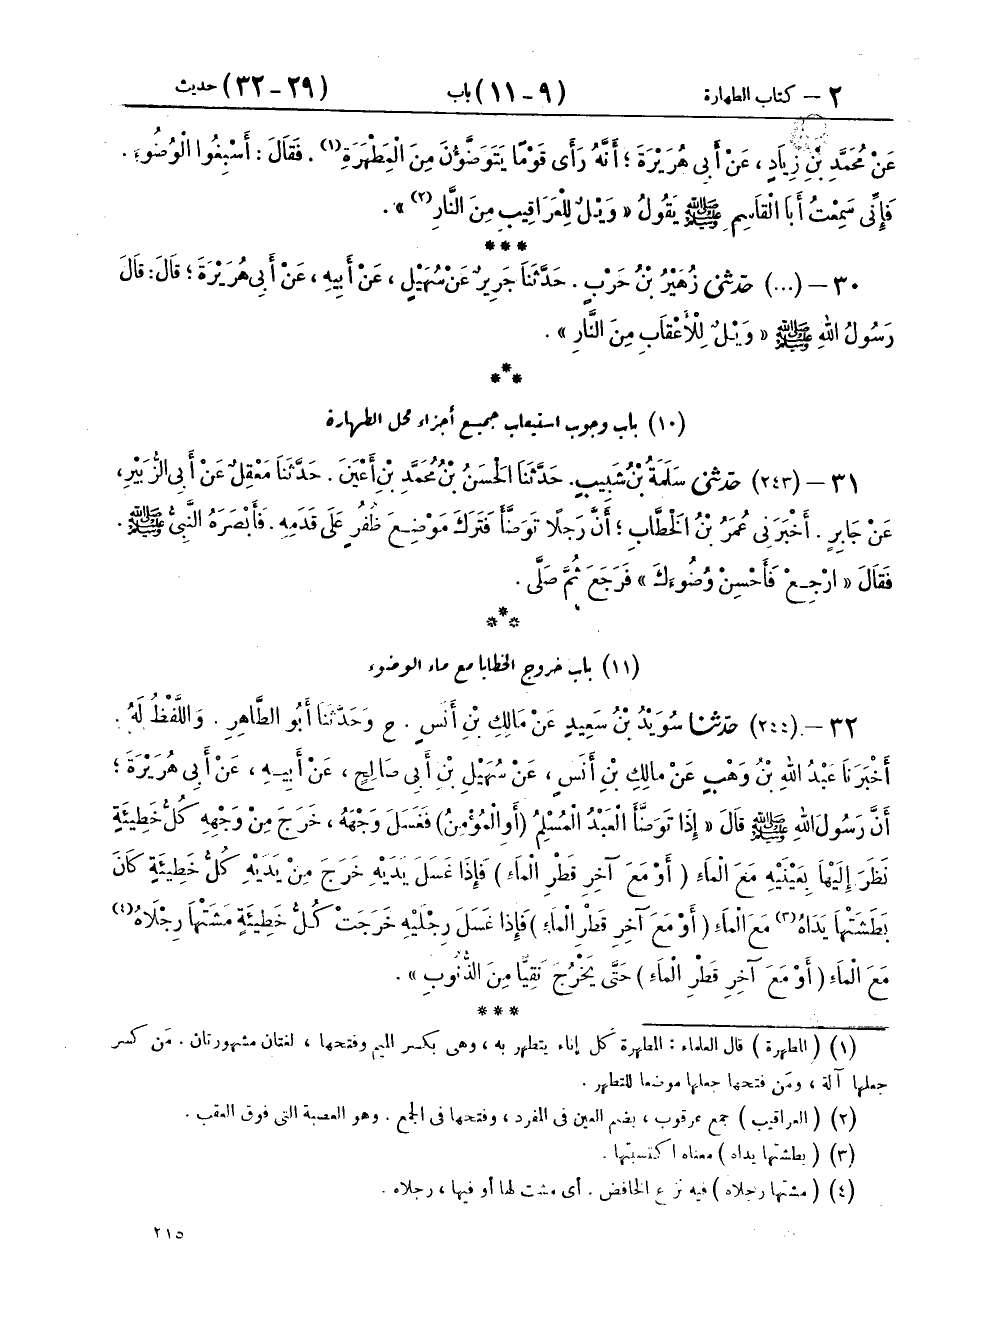 ٢ – كتاب الطهارة (٩ – ١١) باب (٢٩ – ٣٢) حديث
عَنْ مُحَمَّدِ بْنِ زِيَادٍ ، عَنْ أَبِي هُرَيْرَةَ ؛ أَنَّهُ رَأَى قَوْمًا يَتَوَضَّؤُنَ مِنَ الْمِطْهَرَةِ(١) . فَقَالَ : أَسْبِغُوا الْوُضُوءَ .
فَإِنِّي سَمِعْتُ أَبَا الْقَاسِمِ ﷺ يَقُولُ « وَيْلٌ لِلْعَرَاقِيبِ مِنَ النَّارِ(٢) » .
***
٣٠ – (...) حدثني زُهَيْرُ بْنُ حَرْبٍ . حَدَّثَنَا جَرِيرٌ عَنْ سُهَيْلٍ ، عَنْ أَبِيهِ ، عَنْ أَبِي هُرَيْرَةَ ؛ قَالَ : قَالَ
رَسُولُ اللهِ ﷺ « وَيْلٌ لِلْأَعْقَابِ مِنَ النَّارِ » .
***
(١٠) باب وجوب استيعاب جميع أجزاء محل الطهارة
٣١ – (٢٤٣) حدثني سَلَمَةُ بْنُ شَبِيبٍ. حَدَّثَنَا الْحَسَنُ بْنُ مُحَمَّدِ بْنِ أَعْيَنَ . حَدَّثَنَا مَعْقِلٌ عَنْ أَبِي الزُّبَيْرِ ،
عَنْ جَابِرٍ . أَخْبَرَنِي عُمَرُ بْنُ الْخَطَّابِ ؛ أَنَّ رَجُلًا تَوَضَّأَ فَتَرَكَ مَوْضِعَ ظُفُرٍ عَلَى قَدَمِهِ . فَأَبْصَرَهُ النَّبِيُّ ﷺ .
فَقَالَ « ارْجِعْ فَأَحْسِنْ وُضُوءَكَ » فَرَجَعَ ثُمَّ صَلَّى .
***
(١١) باب خروج الخطايا مع ماء الوضوء
٣٢ – (٢٤٤) حدثنا سُوَيْدُ بْنُ سَعِيدٍ عَنْ مَالِكِ بْنِ أَنَسٍ . ح وَحَدَّثَنَا أَبُو الطَّاهِرِ . وَاللَّفْظُ لَهُ .
أَخْبَرَنَا عَبْدُ اللهِ بْنُ وَهْبٍ عَنْ مَالِكِ بْنِ أَنَسٍ ، عَنْ سُهَيْلِ بْنِ أَبِي صَالِحٍ ، عَنْ أَبِيهِ ، عَنْ أَبِي هُرَيْرَةَ ؛
أَنَّ رَسُولَ اللهِ ﷺ قَالَ « إِذَا تَوَضَّأَ الْعَبْدُ الْمُسْلِمُ (أَوِ الْمُؤْمِنُ) فَغَسَلَ وَجْهَهُ ، خَرَجَ مِنْ وَجْهِهِ كُلُّ خَطِيئَةٍ
نَظَرَ إِلَيْهَا بِعَيْنَيْهِ مَعَ الْمَاءِ ( أَوْ مَعَ آخِرِ قَطْرِ الْمَاءِ ) فَإِذَا غَسَلَ يَدَيْهِ خَرَجَ مِنْ يَدَيْهِ كُلُّ خَطِيئَةٍ كَانَ
بَطَشَتْهَا يَدَاهُ(٣) مَعَ الْمَاءِ ( أَوْ مَعَ آخِرِ قَطْرِ الْمَاءِ ) فَإِذَا غَسَلَ رِجْلَيْهِ خَرَجَتْ كُلُّ خَطِيئَةٍ مَشَتْهَا رِجْلَاهُ(٤)
مَعَ الْمَاءِ ( أَوْ مَعَ آخِرِ قَطْرِ الْمَاءِ ) حَتَّى يَخْرُجَ نَقِيًّا مِنَ الذُّنُوبِ » .
***
(١) ( المطهرة ) قال العلماء : المطهرة كل إناء يتطهر به ، وهى بكسر الميم وفتحها ، لغتان مشهورتان . مَن كسر
جعلها آلة ، ومَن فتحها جعلها موضعا للتطهر .
(٢) ( العراقيب ) جمع عرقوب ، بضم العين فى المفرد ، وفتحها فى الجمع . وهو العصبة التى فوق العقب .
(٣) ( بطشتها يداه ) معناه اكتسبتها .
(٤) ( مشتها رجلاه ) فيه نزع الخافض . أى مشت لها أو فيها ، رجلاه .
٢١٥